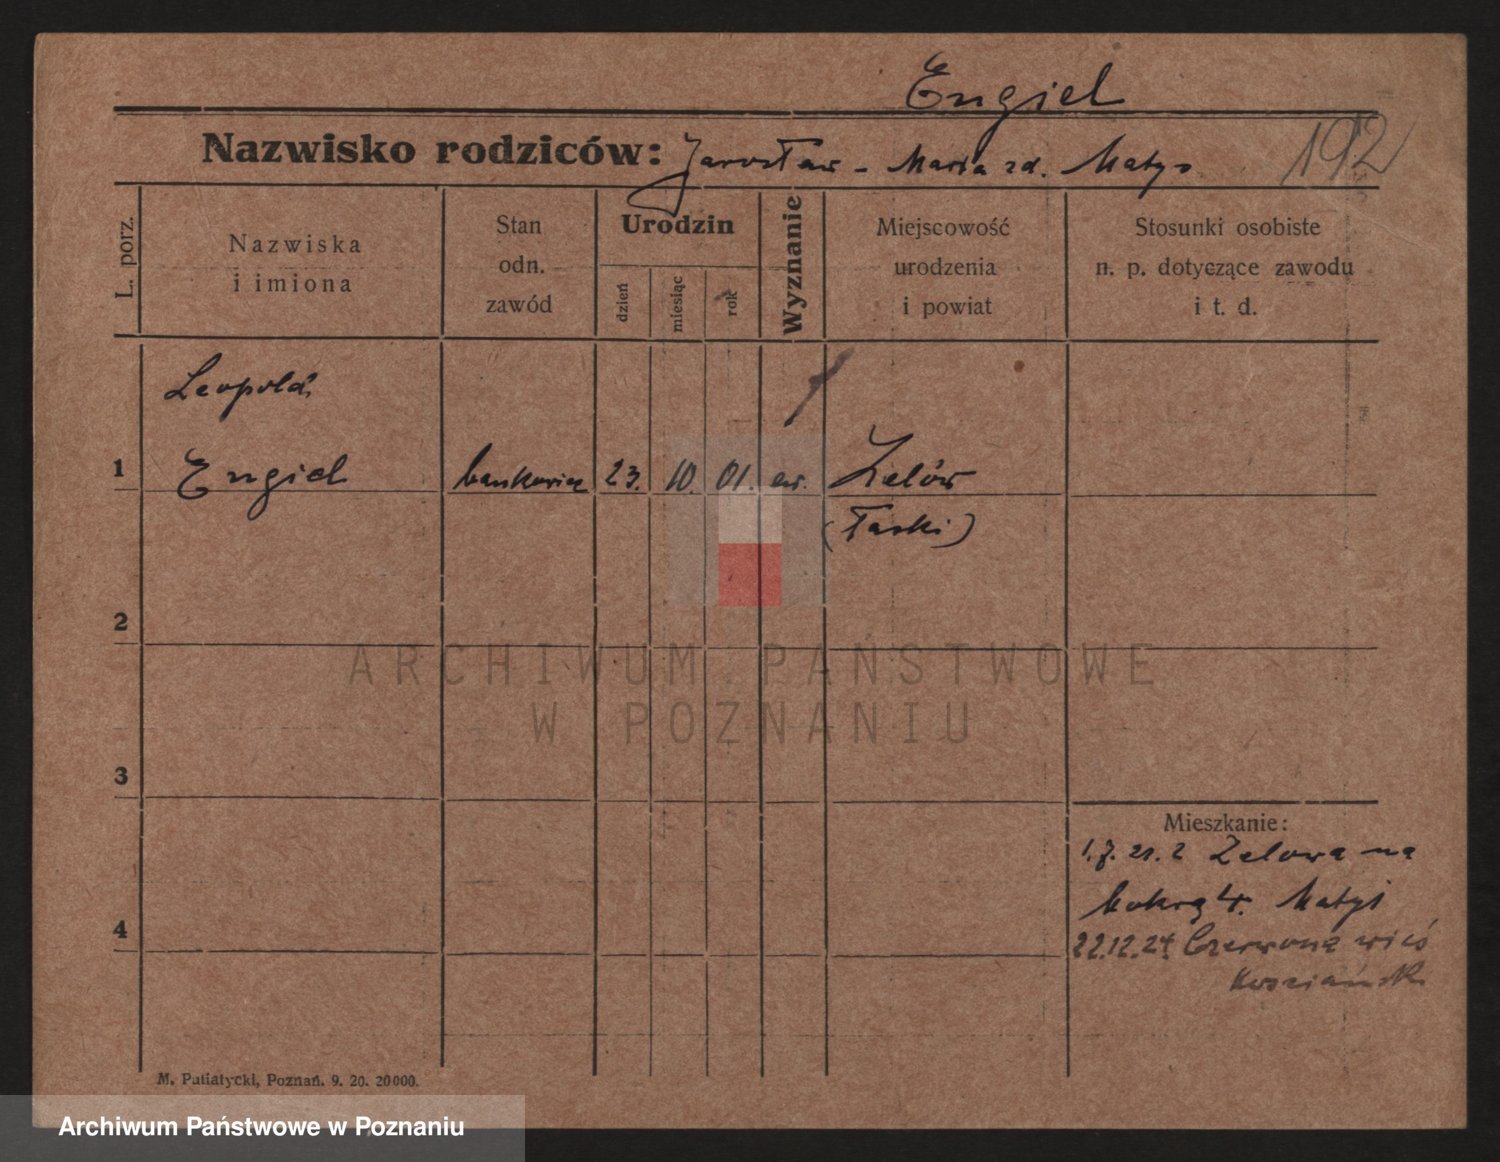 Engiel
Nazwisko rodziców: Jarosław - Maria zd. Matys
192
L. porz.
Nazwiska
i imiona
Stan
odn.
zawód
Urodzin
dzień
miesiąc
rok
Wyznanie
Miejscowość
urodzenia
i powiat
Stosunki osobiste
n. p. dotyczące zawodu
i t. d.
Leopold
1 Engiel bankowiec 23. 10. 01. ew. Zelów
(Łaski)
2
3
4
Mieszkanie:
1.7.21. z Zelowa na
Mokrą 4. Matys
22.12.24 Czerwona wieś
ARCHIWUM PAŃSTWOWE
W POZNANIU
M. Putiatycki, Poznań. 9. 20. 20000.
Archiwum Państwowe w Poznaniu